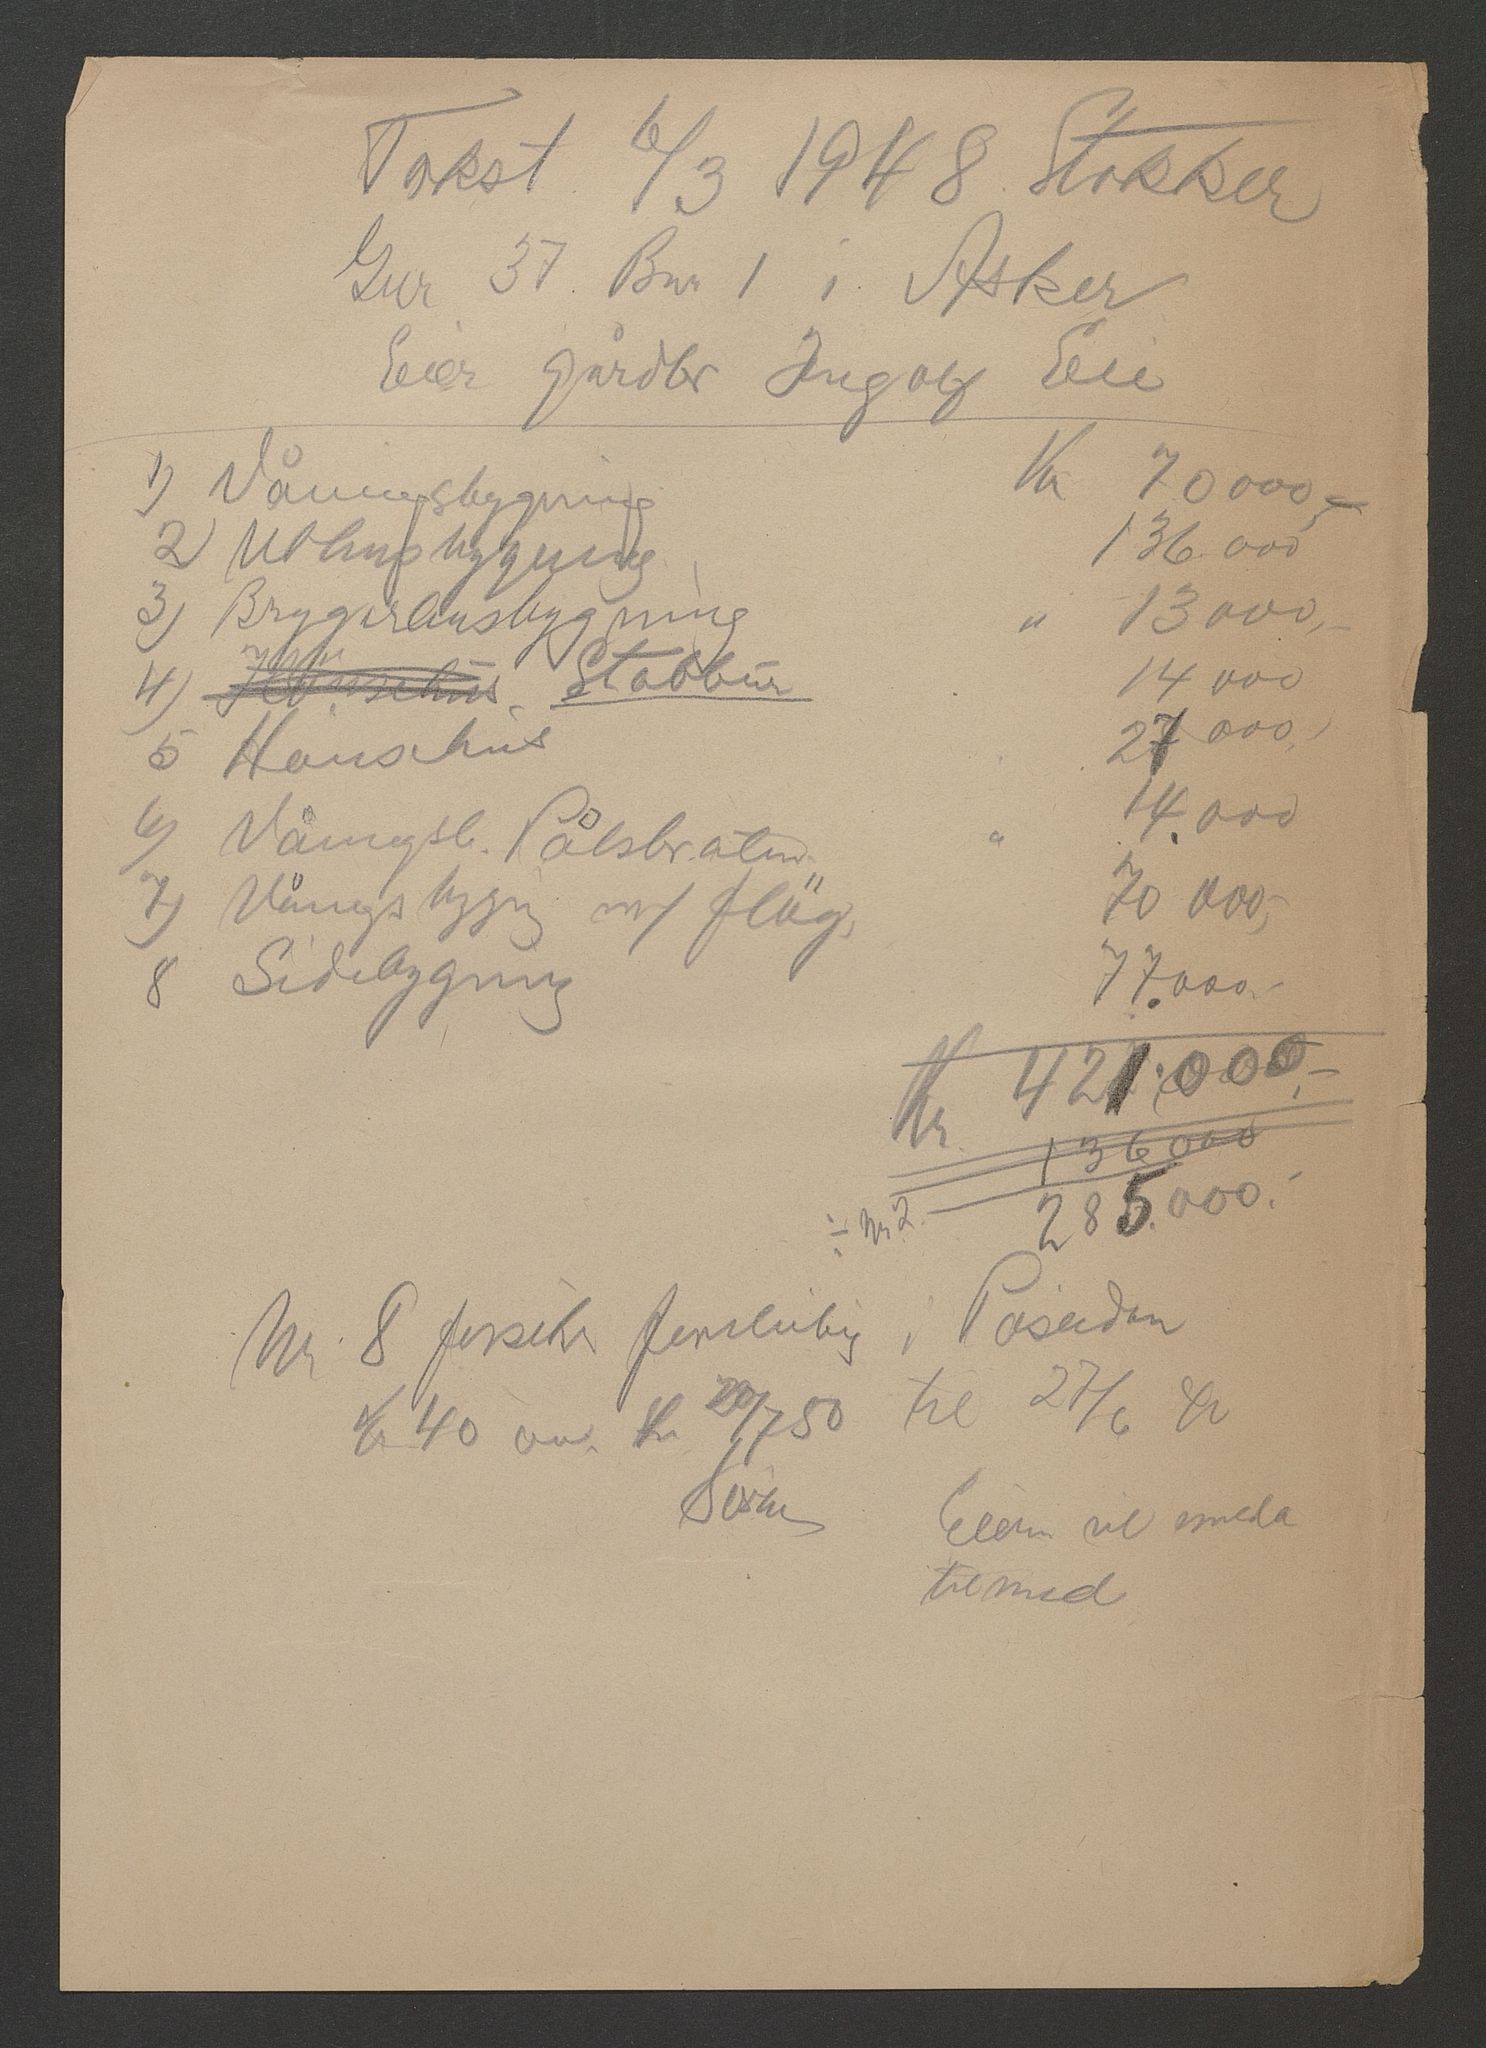 Takst 6/3 1948 Stokker
Gnr 37 Bnr 1 i Asker
Eier gårdbr Ingolf Eie
1) Våningsbygning Kr 70000,-
2) Uthusbygning 136.000
3) Bryggerhusbygning " 13000,-
4) Hönsehus. Stabbur 14000
5 Hönsehus 27000,-
6) Våningsb. Pålsbråten " 14.000
7) Vånigsbyggig m/ fløg. 70000,-
8 Sidebygning 77.000.-
Kr. 421.000,-
136000
÷ Nr 2. 285.000.-
Nr. 8 forsikr i Poseidon
kr 40 20/7 50 til 27/6
Eieren vil